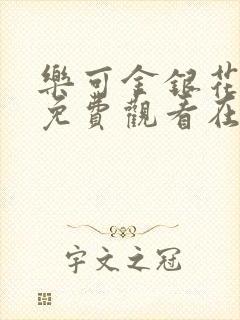 樂可金銀花
免費觀看在
宇文之冠